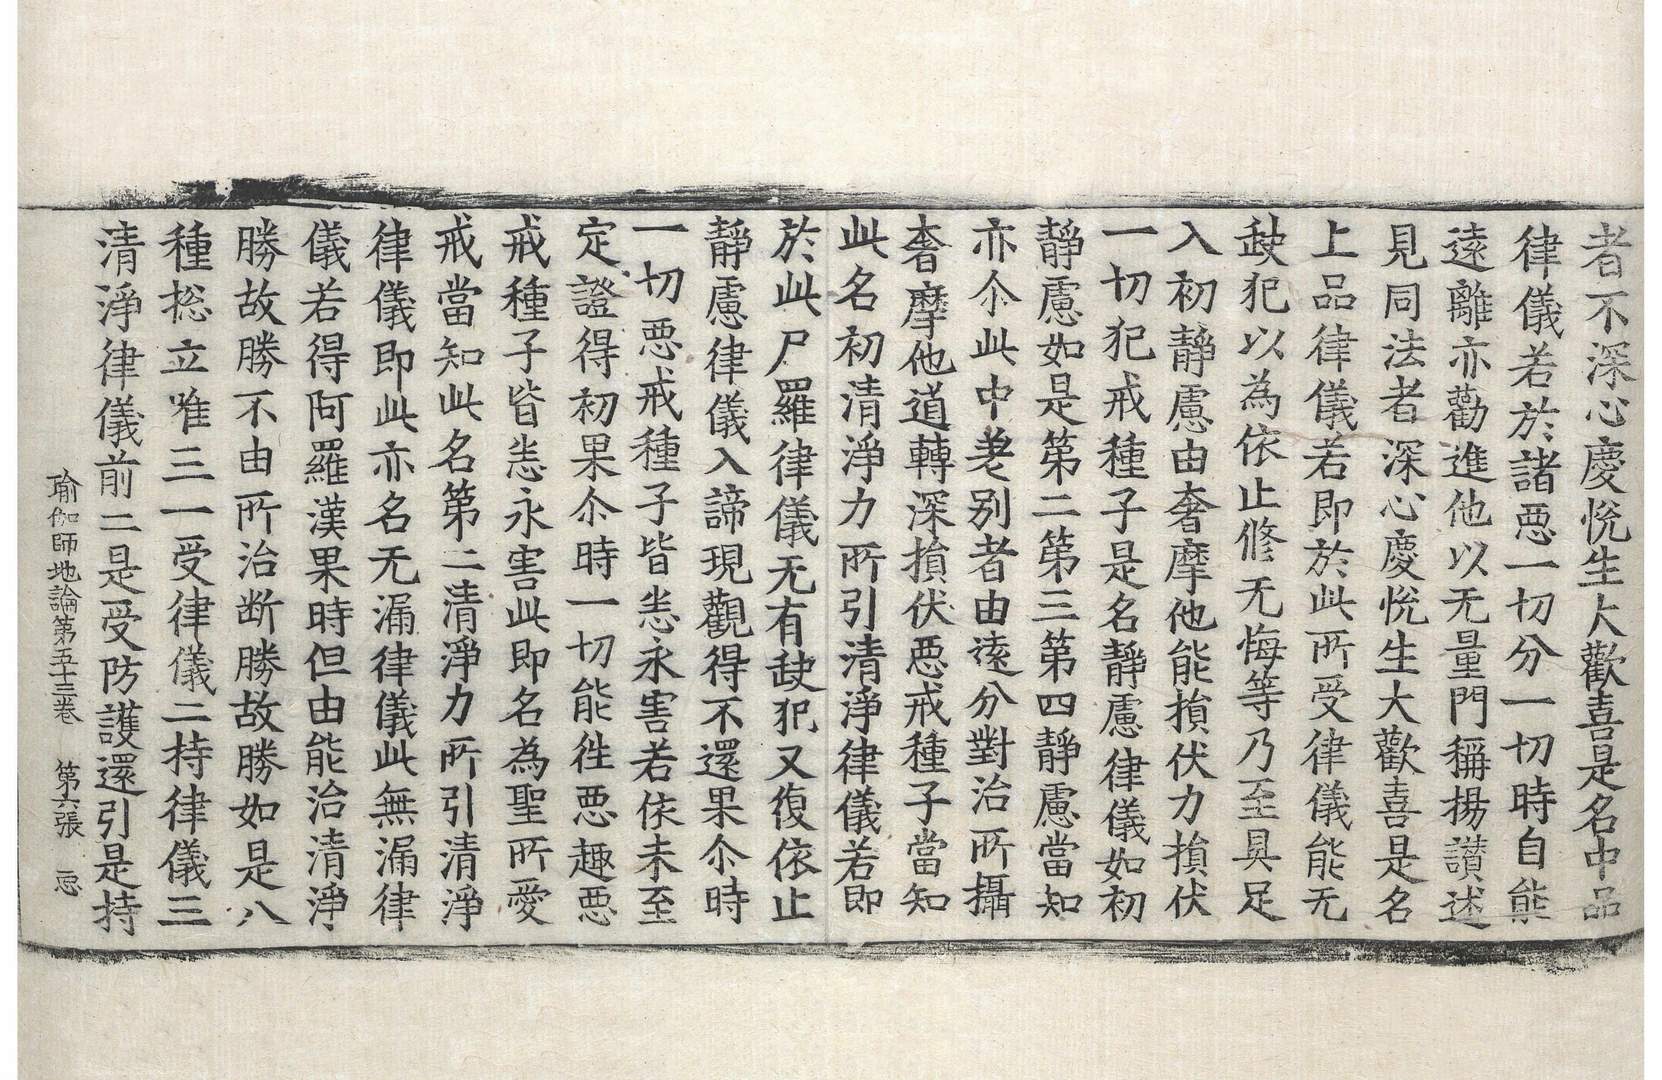 者不深心慶恱生大歡喜是名中品
律儀若於諸惡一切分一切時自能
遠離亦勸進他以无量門稱揚讃述
見同法者深心慶恱生大歡喜是名
上品律儀若即於此所受律儀能无
𡙇犯以為依止修无悔等乃至具足
入初靜慮由奢摩他能損伏力損伏
一切犯戒種子是名靜慮律儀如初
靜慮如是第二第三第四靜慮當知
亦尒此中差别者由遠分對治所攝
奢摩他道轉深損伏惡戒種子當知
此名初清淨力所引清淨律儀若即
於此尸羅律儀无有𡙇犯又復依止
靜慮律儀入諦現觀得不還果尒時
一切惡戒種子皆悉永害若依未至
定證得初果尒時一切能徃惡趣惡
戒種子皆悉永害此即名為聖所愛
戒當知此名第二清淨力所引清淨
律儀即此亦名无漏律儀此無漏律
儀若得阿羅漢果時但由能治清淨
勝故勝不由所治断勝故勝如是八
種捴立唯三一受律儀二持律儀三
清淨律儀前二是受防護還引是持
瑜伽師地論第五十三卷　第六張　惡